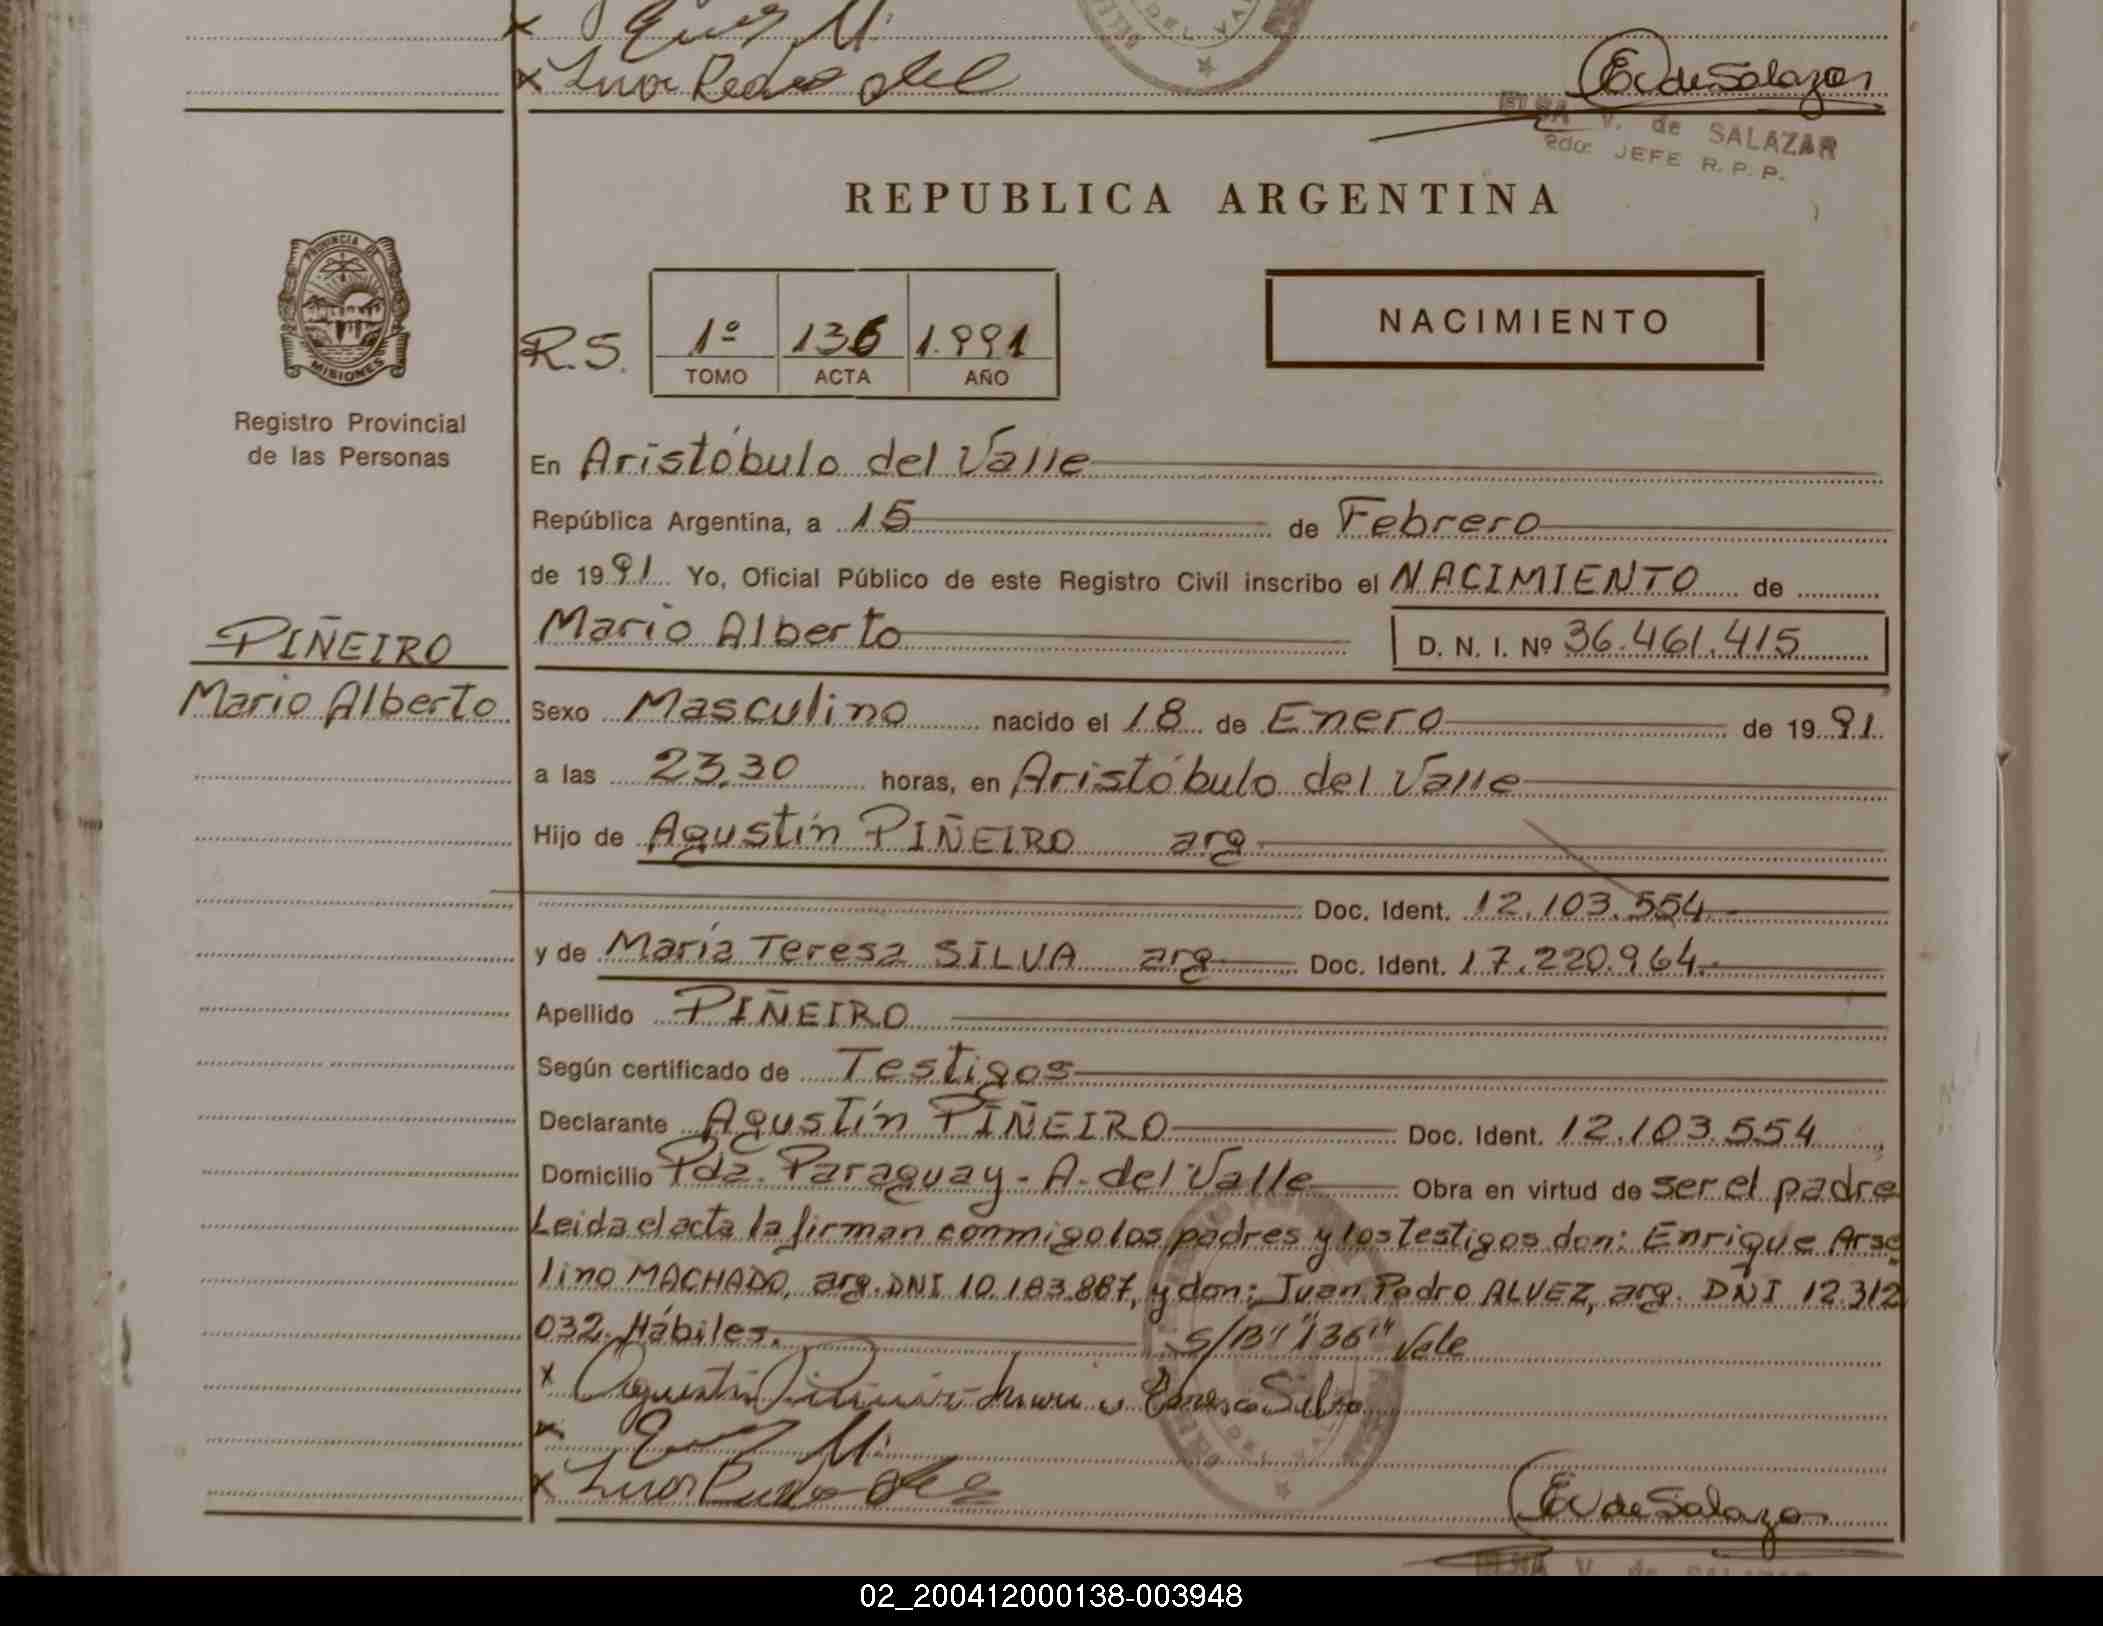 Juan Pedro
EV de Salazar
ELBA V. de SALAZAR
2do. JEFE R. P. P.
REPUBLICA ARGENTINA
PROVINCIA DE
MISIONES
R.S.
1º 136 1.991
TOMO ACTA AÑO
NACIMIENTO
Registro Provincial
de las Personas
En Aristóbulo del Valle
República Argentina, a 15 de Febrero
de 1991 Yo, Oficial Público de este Registro Civil inscribo el NACIMIENTO de
PIÑEIRO
Mario Alberto
Mario Alberto D. N. I. Nº 36.461.415
Sexo Masculino nacido el 18 de Enero de 1991
a las 23,30 horas, en Aristóbulo del Valle
Hijo de Agustín PIÑEIRO arg
Doc. Ident. 12.103.554
y de María Teresa SILVA arg Doc. Ident. 17.220.964.
Apellido PIÑEIRO
Según certificado de Testigos
Declarante Agustín PIÑEIRO Doc. Ident. 12.103.554
Domicilio Pda. Paraguay - A. del Valle Obra en virtud de ser el padre
Leida el acta la firman conmigo los padres y los testigos don: Enrique Arse
lino MACHADO, arg. DNI 10.183.887, y don: Juan Pedro ALVEZ, arg. DNI 12.312
032. Hábiles. S/B "136" Vale
x Agustin Piñeiro Maria Teresa Silva
x
x Juan Pedro
EV de Salazar
ELBA V. de SALAZAR
02_200412000138-003948